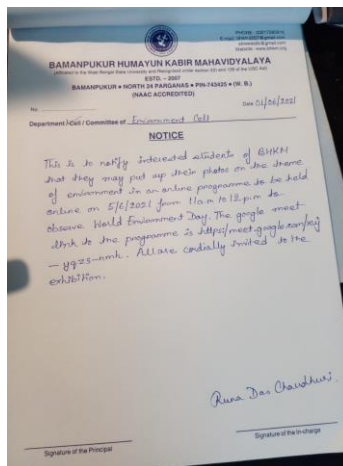 PHONE:
BAMANPUKUR HUMAYUN KABIR MAHAVIDYALAYA
(Affiliated to the West Bengal State University and Recognised under section 2(f) and 12B of the UGC Act)
ESTD. - 2007
BAMANPUKUR ● NORTH 24 PARGANAS ● PIN-743425 ● (W. B.)
(NAAC ACCREDITED)
No. Date 01/06/2021
Department / Cell / Committee of Environment Cell
NOTICE
This is to notify interested students of BHKM
that they may put up their photos on the theme
of environment in an online programme to be held
online on 5/6/2021 from 11a.m to 12 p.m to
observe World Environment Day. The google meet
link to the programme is https://meet.google.com/
- yqzs-nmh. All are cordially invited to the
exhibition.
Runa Das Chaudhuri
Signature of the Principal
Signature of the In-charge